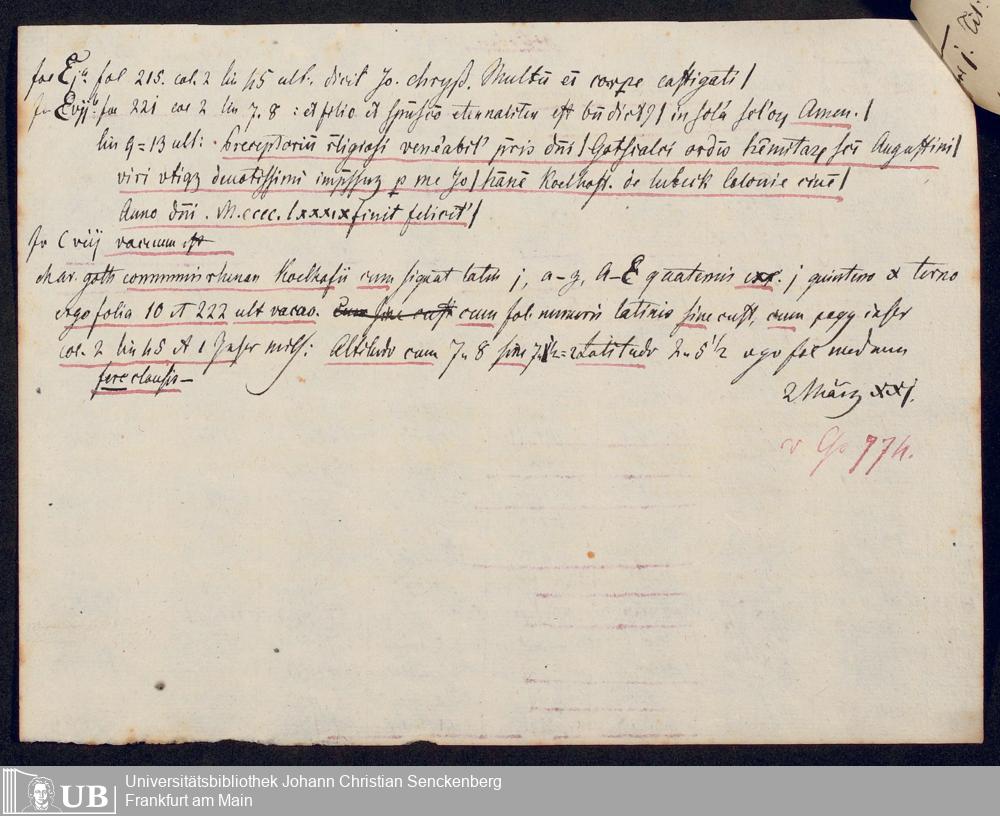 fac Ej a. fol 215. col. 2 lin 45 ult. dicit Jo. chryß. Multū ei corpe castigati/
fol 221 col 2 lin 7. 8 : et filio et spūsco eternaliter est bn̄dict9/ in sclā sclo4 Amen./
lin 9=13 ult: preceptoriū religiosi venēabil' pris dn̄i/ Gotscalci ordīs hēmitar4 scī Augustini/
viri utiq4 deuotissimi imp̄ssu4 p me Jo/ hānē Koelhoff. de lubeck Colonie ciuē/
Anno dn̄i. M.cccc.lxxxix finit felicit'/
vacuum est
char. goth communis rhenan Koelhofii cum signat latin j, a-z, A-E quaternis j quinterno & terno
ergo folia 10 et 222 ult vacao. cum fol. numeris latinis sine cust, cum pagg inscr
col. 2 lin 45 et 1 Inscr Altitudo cum 7„ 8 sine 7. latitudo 2„ 5 1/2 ergo fol medium
fere clausis—
2 März xxj.
v Go 774.
Universitätsbibliothek Johann Christian Senckenberg
UB Frankfurt am Main